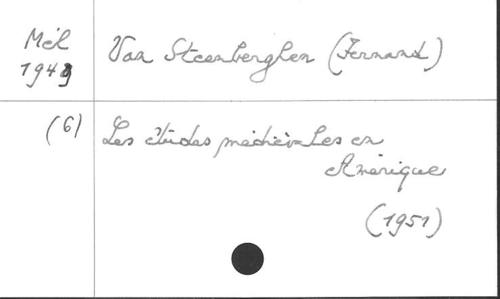 Mél
1949
Van Steenberghen (Fernand)
(6)
Les études médiévales en
Amérique
(1951)